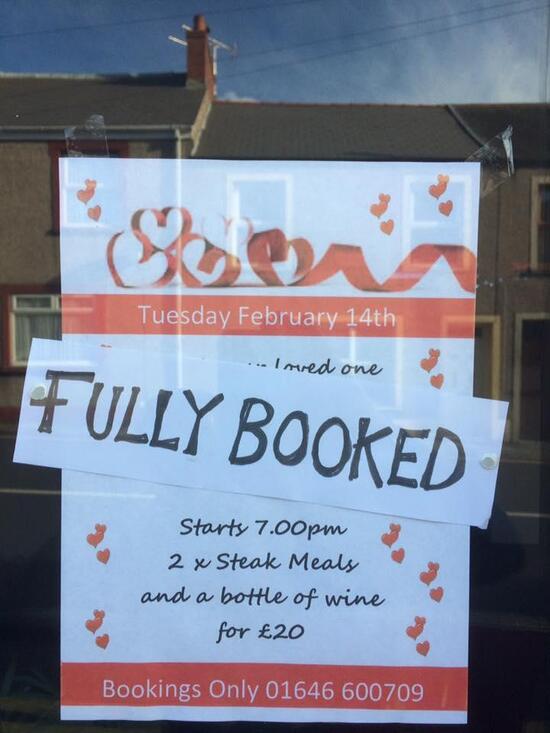 Tuesday February 14th
loved one
FULLY BOOKED
Starts 7.00pm
2 x Steak Meals
and a bottle of wine
for £20
Bookings Only 01646 600709